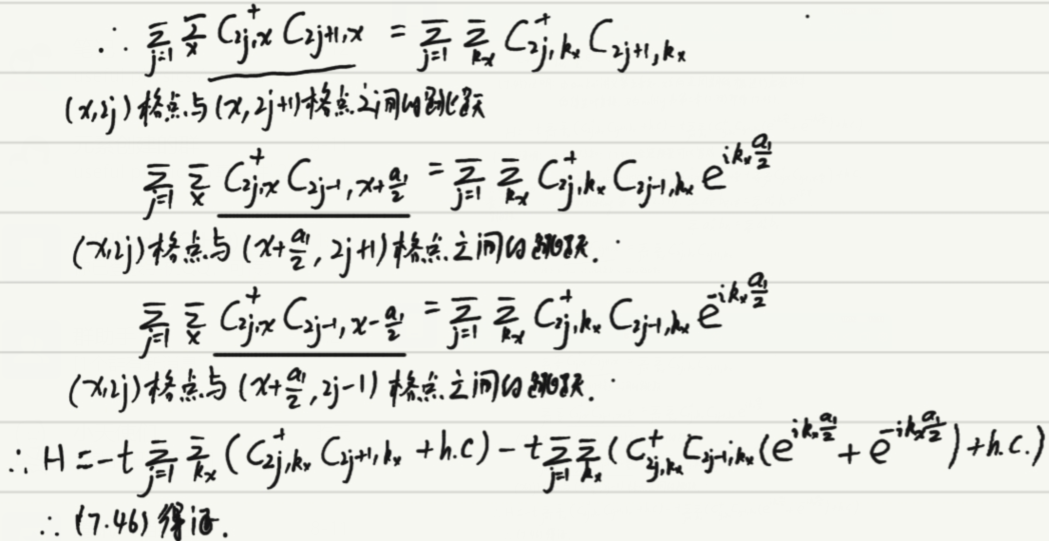 ∴ Σ_{j=1} Σ_x C†_{2j,x} C_{2j+1,x} = Σ_{j=1} Σ_{k_x} C†_{2j,k_x} C_{2j+1,k_x}
(x,2j)格点与(x,2j+1)格点之间的跳跃
Σ_{j=1} Σ_x C†_{2j,x} C_{2j-1,x+a₁/2} = Σ_{j=1} Σ_{k_x} C†_{2j,k_x} C_{2j-1,k_x} e^{ik_x a₁/2}
(x,2j)格点与(x+a₁/2, 2j+1)格点之间的跳跃.
Σ_{j=1} Σ_x C†_{2j,x} C_{2j-1,x-a₁/2} = Σ_{j=1} Σ_{k_x} C†_{2j,k_x} C_{2j-1,k_x} e^{-ik_x a₁/2}
(x,2j)格点与(x+a₁/2, 2j-1)格点之间的跳跃.
∴ H = -t Σ_{j=1} Σ_{k_x} (C†_{2j,k_x} C_{2j+1,k_x} + h.c) - t Σ_{j=1} Σ_{k_x} (C†_{2j,k_x} C_{2j-1,k_x} (e^{ik_x a₁/2} + e^{-ik_x a₁/2}) + h.c.)
∴ (7.46) 得证.